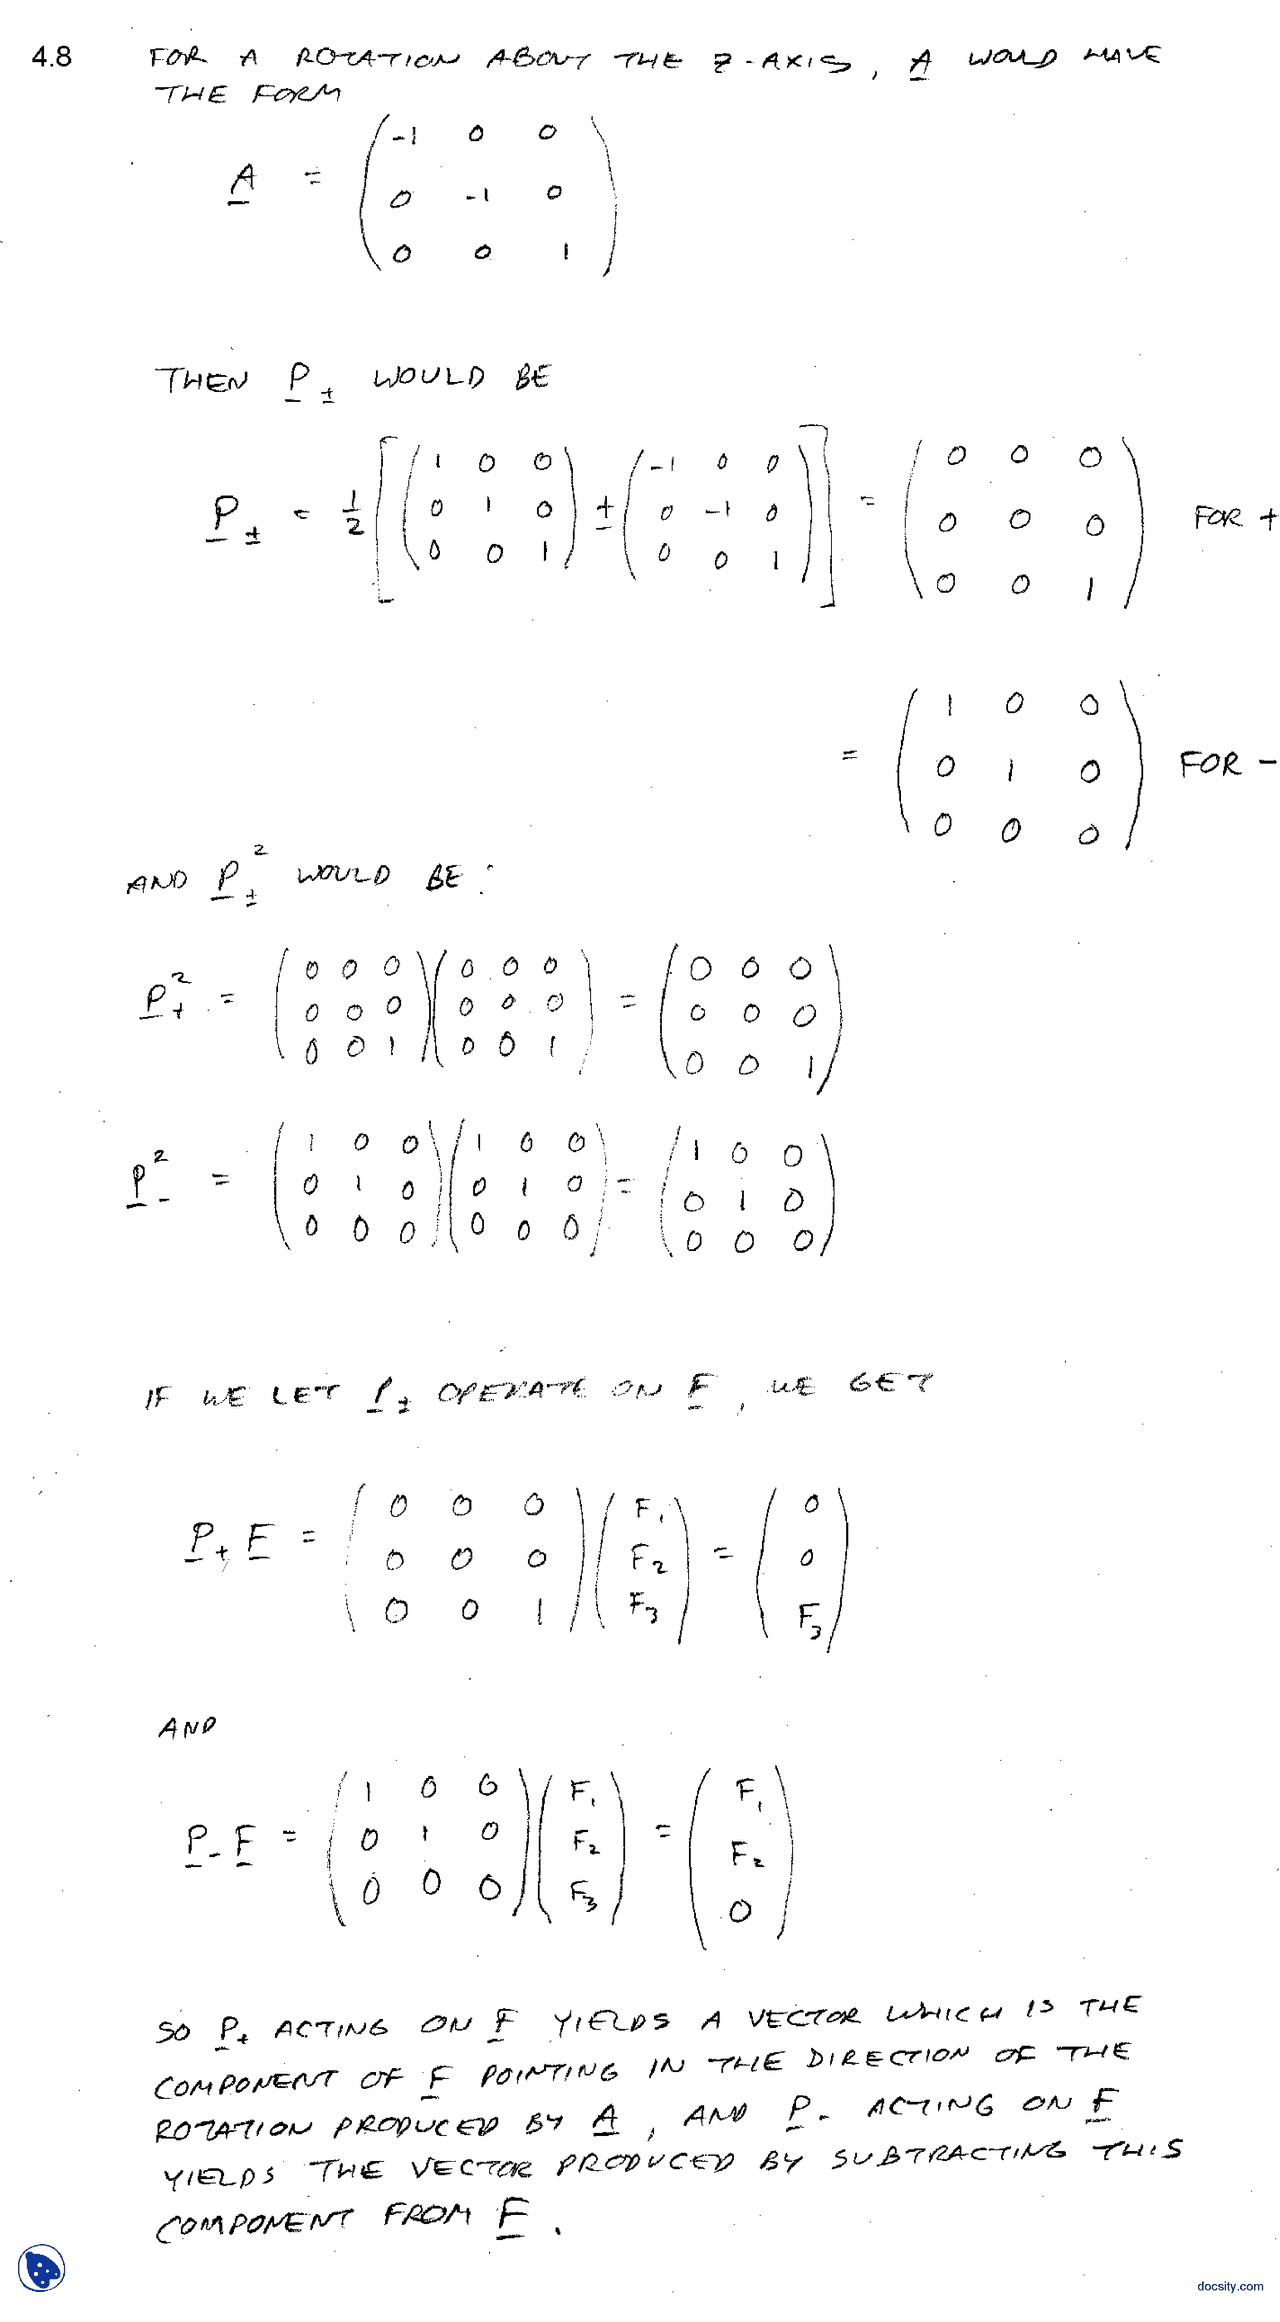 4.8 FOR A ROTATION ABOUT THE Z-AXIS, A WOULD HAVE
THE FORM
A = ( -1 0 0
0 -1 0
0 0 1 )
THEN P± WOULD BE
P± = 1/2 [ ( 1 0 0 ) ± ( -1 0 0 ) ] = ( 0 0 0 ) FOR +
0 1 0 0 -1 0 0 0 0
0 0 1 0 0 1 0 0 1
= ( 1 0 0 ) FOR -
0 1 0
0 0 0
AND P±² WOULD BE:
P+² = ( 0 0 0 ) ( 0 0 0 ) = ( 0 0 0 )
0 0 0 0 0 0 0 0 0
0 0 1 0 0 1 0 0 1
P-² = ( 1 0 0 ) ( 1 0 0 ) = ( 1 0 0 )
0 1 0 0 1 0 0 1 0
0 0 0 0 0 0 0 0 0
IF WE LET P± OPERATE ON F, WE GET
P+ F = ( 0 0 0 ) ( F1 ) = ( 0 )
0 0 0 F2 0
0 0 1 F3 F3
AND
P- F = ( 1 0 0 ) ( F1 ) = ( F1 )
0 1 0 F2 F2
0 0 0 F3 0
SO P+ ACTING ON F YIELDS A VECTOR WHICH IS THE
COMPONENT OF F POINTING IN THE DIRECTION OF THE
ROTATION PRODUCED BY A, AND P- ACTING ON F
YIELDS THE VECTOR PRODUCED BY SUBTRACTING THIS
COMPONENT FROM F.
docsity.com